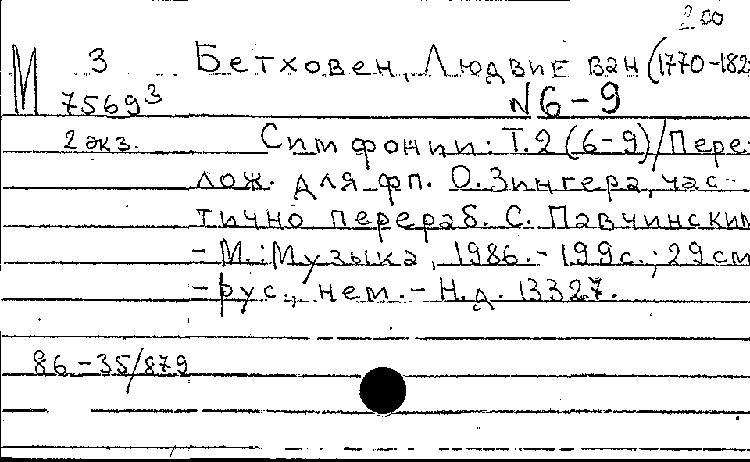 200
М 3 Бетховен, Людвиг ван (1770-182
7569³ N6-9
2 экз. Симфонии: Т.2 (6-9)/Пере-
лож. для фп. О.Зингера, час-
тично перераб. С. Павчинским
- М.: Музыка, 1986.- 199с.; 29см
- рус., нем. - Н.д. 13327.
86-35/879